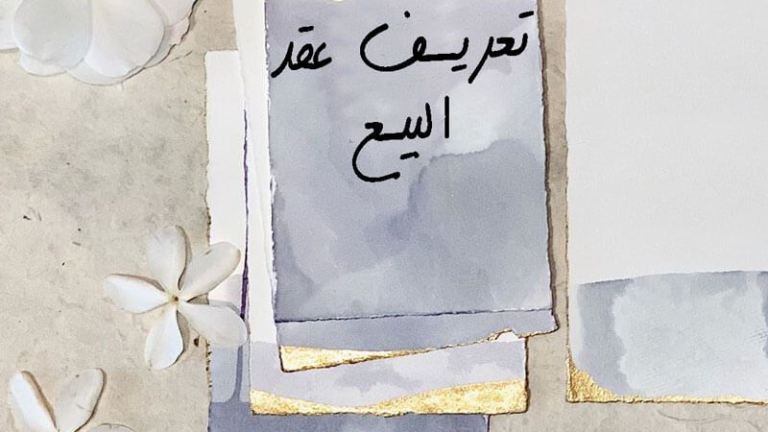 تعريف عقد
البيع